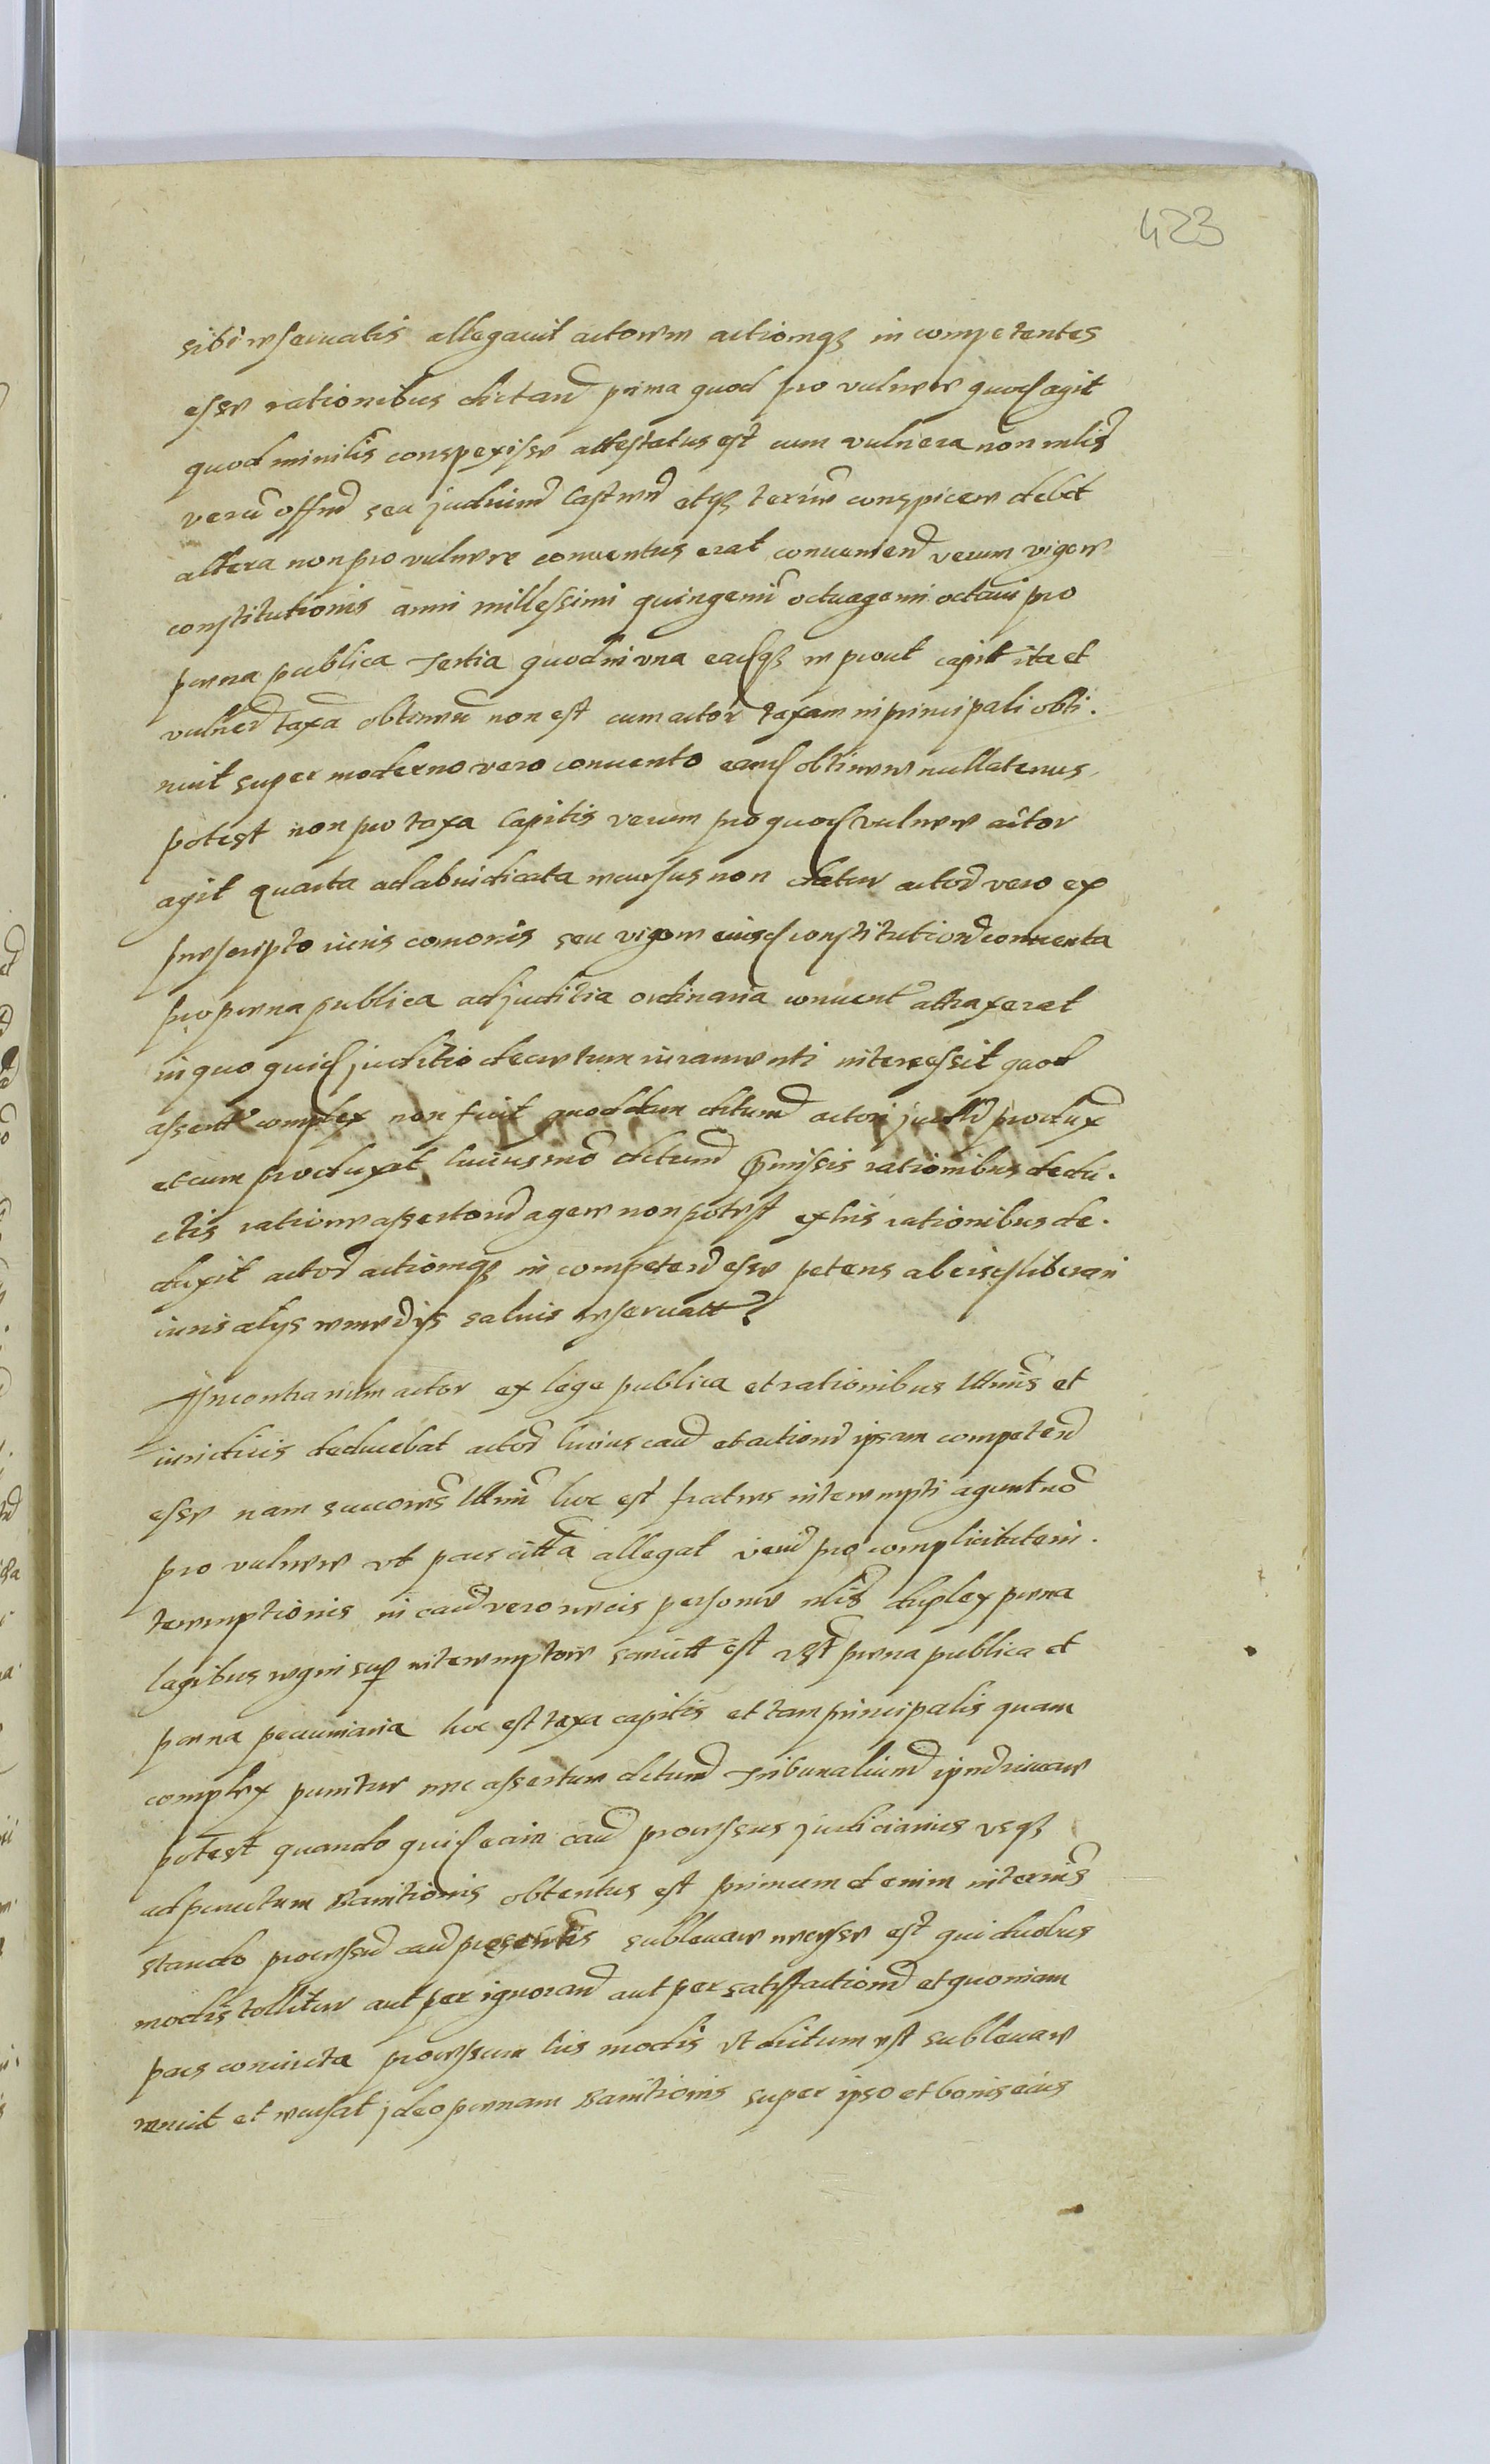 423
sibi reseruatis allegauit actorem actionemq in competentes
esse rationibus dictand prima quod pro vulnere quod agit
quod minilis conspexisse attestatus est cum vulnera non mlis
veru offm seu judicium Castren etq terrm conspicere debet
altera non pro vulnere conuentus erat conueniend verum vigore
constitutionis anni millessimi quingenti octuagemi octaui pro
poena publica Tertia quod in vna eadq re prout capit ita et
vulner taxa obtinen non est cum actor taxam in principali obti.
nuit super moderno vero conuento eand obtinere nullatenus
potest non pro taxa Capitis verum pro quod vulnere actor
agit quarta ad abiudicata recursus non datur actor vero ex
prescripto iuris comonis seu vigore eiusd constitution conuenta
pro poena publica ad juditia ordinaria conuent attraxerat
in quo quid juditio decretum iuramenti intercessit quod
assert complex non fuit quod dum ditum actori jud produx
et cum produxat huiusmo ditum pmissis rationibus dedu.
ctis ratione assertor agere non potest ex his rationibus de.
duxit actor actionemq in competen esse petens ab eisd liberari
iuris alys remedys saluis reseruatt
In contrarium actor ex lege publica et rationibus Ittmis et
iuridicis deducebat actor huius caus et action ipsam competen
esse nam succores Ittm hoc est fratres interempti agunt no
pro vulnere vt pars citta allegat veru pro complicitate in.
teremptionis in caus vero necis personae nlis duplex poena
legibus regni sup interemptore sancitt est vst poena publica et
poena pecuniaria hoc est taxa capitis et tam principalis quam
complex punitur nec assertum ditum Tribunalium
potest quando quid eam caus processus judiciarius vsq
ad punctum Banitionis obtentus est primum et enim in termis
stando processu caus presentis subleuare necesse est qui duobus
modis tollitur aut per ignoran aut per satisfaction et quoniam
pars conuicta processum his modis vt dictum est subleuare
renuit et recusat jdeo poenam Banitionis super ipso et bonis eius